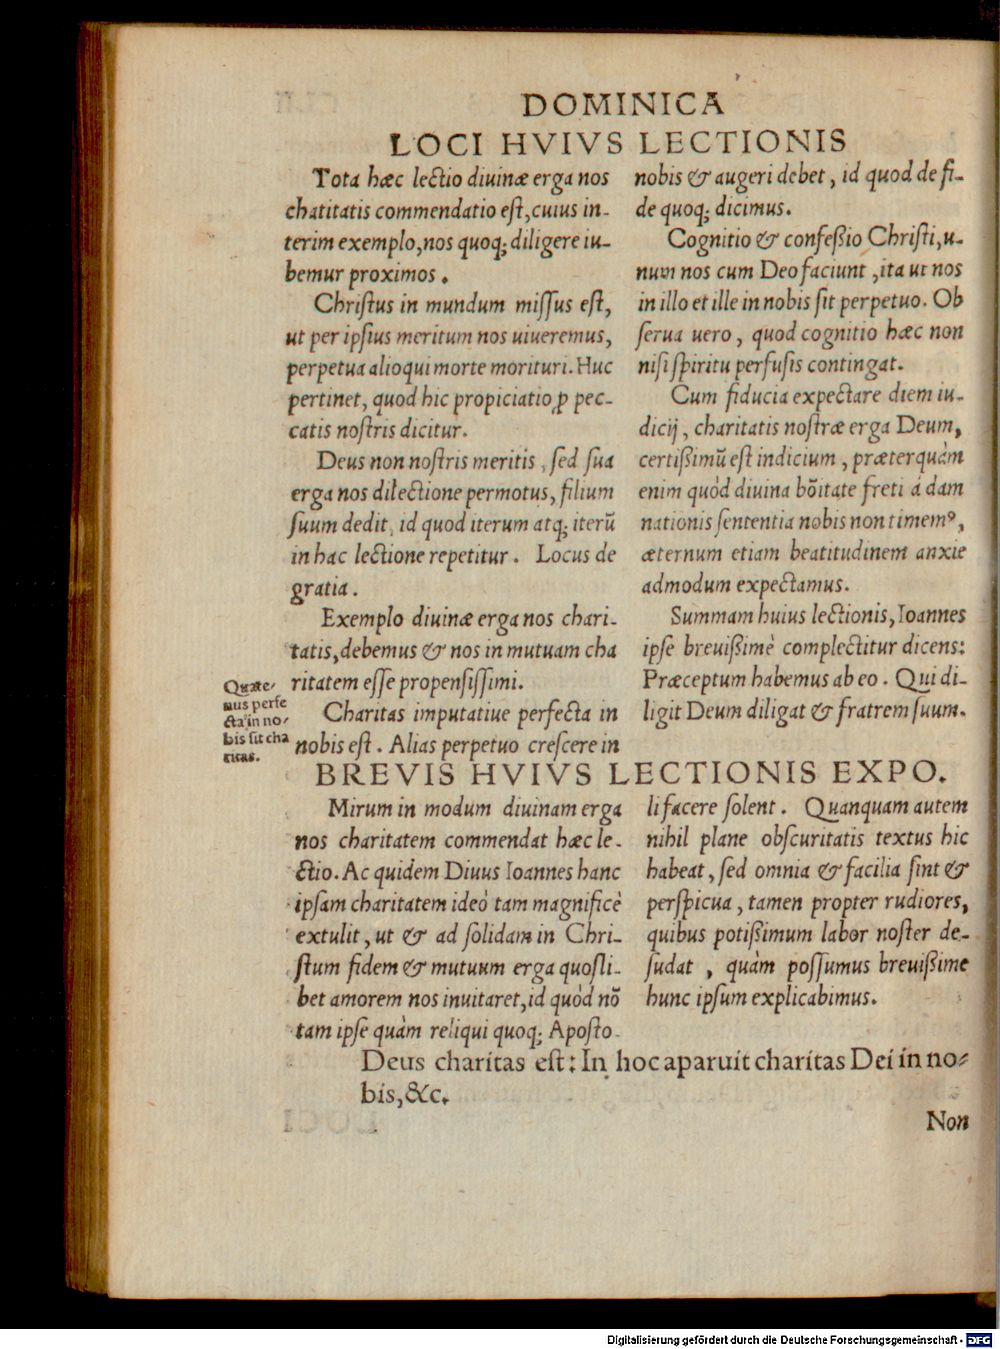 DOMINICA
LOCI HVIVS LECTIONIS
Tota hæc lectio diuinæ erga nos
chatitatis commendatio est, cuius in-
terim exemplo, nos quoq; diligere iu-
bemur proximos.
Christus in mundum missus est,
ut per ipsius meritum nos uiueremus,
perpetua alioqui morte morituri. Huc
pertinet, quod hic propiciatio ꝓ pec-
catis nostris dicitur.
Deus non nostris meritis, sed sua
erga nos dilectione permotus, filium
suum dedit, id quod iterum atq; iterũ
in hac lectione repetitur. Locus de
gratia.
Exemplo diuinæ erga nos chari-
tatis, debemus & nos in mutuam cha
ritatem esse propensissimi.
Quate-
nus perfe
cta in no-
bis sit cha
ritas.
Charitas imputatiue perfecta in
nobis est. Alias perpetuo crescere in
nobis & augeri debet, id quod de fi-
de quoq; dicimus.
Cognitio & confeßio Christi, u-
num nos cum Deo faciunt, ita ut nos
in illo et ille in nobis sit perpetuo. Ob
serua uero, quod cognitio hæc non
nisi spiritu perfusis contingat.
Cum fiducia expectare diem iu-
dicij, charitatis nostræ erga Deum,
certißimũ est indicium, præterquàm
enim quòd diuina bõitate freti á dam
nationis sententia nobis non timemꝰ,
æternum etiam beatitudinem anxie
admodum expectamus.
Summam huius lectionis, Ioannes
ipse breuißimè complectitur dicens:
Præceptum habemus ab eo. Qui di-
ligit Deum diligat & fratrem suum.
BREVIS HVIVS LECTIONIS EXPO.
Mirum in modum diuinam erga
nos charitatem commendat hæc le-
ctio. Ac quidem Diuus Ioannes hanc
ipsam charitatem ideò tam magnificè
extulit, ut & ad solidam in Chri-
stum fidem & mutuum erga quosli-
bet amorem nos inuitaret, id quòd nõ
tam ipse quàm reliqui quoq; Aposto-
li facere solent. Quanquam autem
nihil plane obscuritatis textus hic
habeat, sed omnia & facilia sint &
perspicua, tamen propter rudiores,
quibus potißimum labor noster de-
sudat, quàm possumus breuißime
hunc ipsum explicabimus.
Deus charitas est: In hoc aparuit charitas Dei in no-
bis, &c.
Non
Digitalisierung gefördert durch die Deutsche Forschungsgemeinschaft - DFG